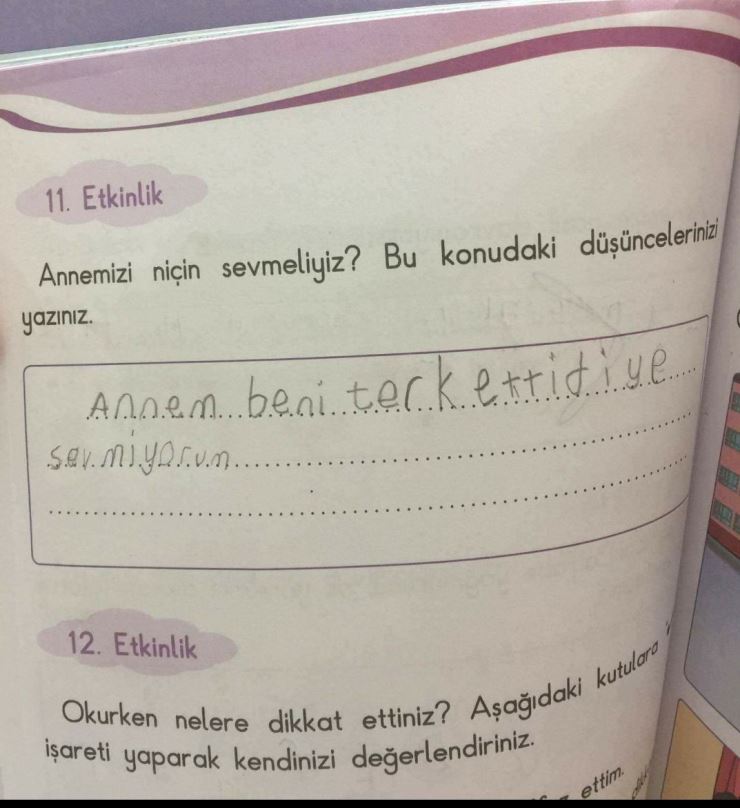 11. Etkinlik
Annemizi niçin sevmeliyiz? Bu konudaki düşüncelerinizi
yazınız.
Annem beni terk etti diye
sevmiyorum
12. Etkinlik
Okurken nelere dikkat ettiniz? Aşağıdaki kutulara
işareti yaparak kendinizi değerlendiriniz.
ettim.